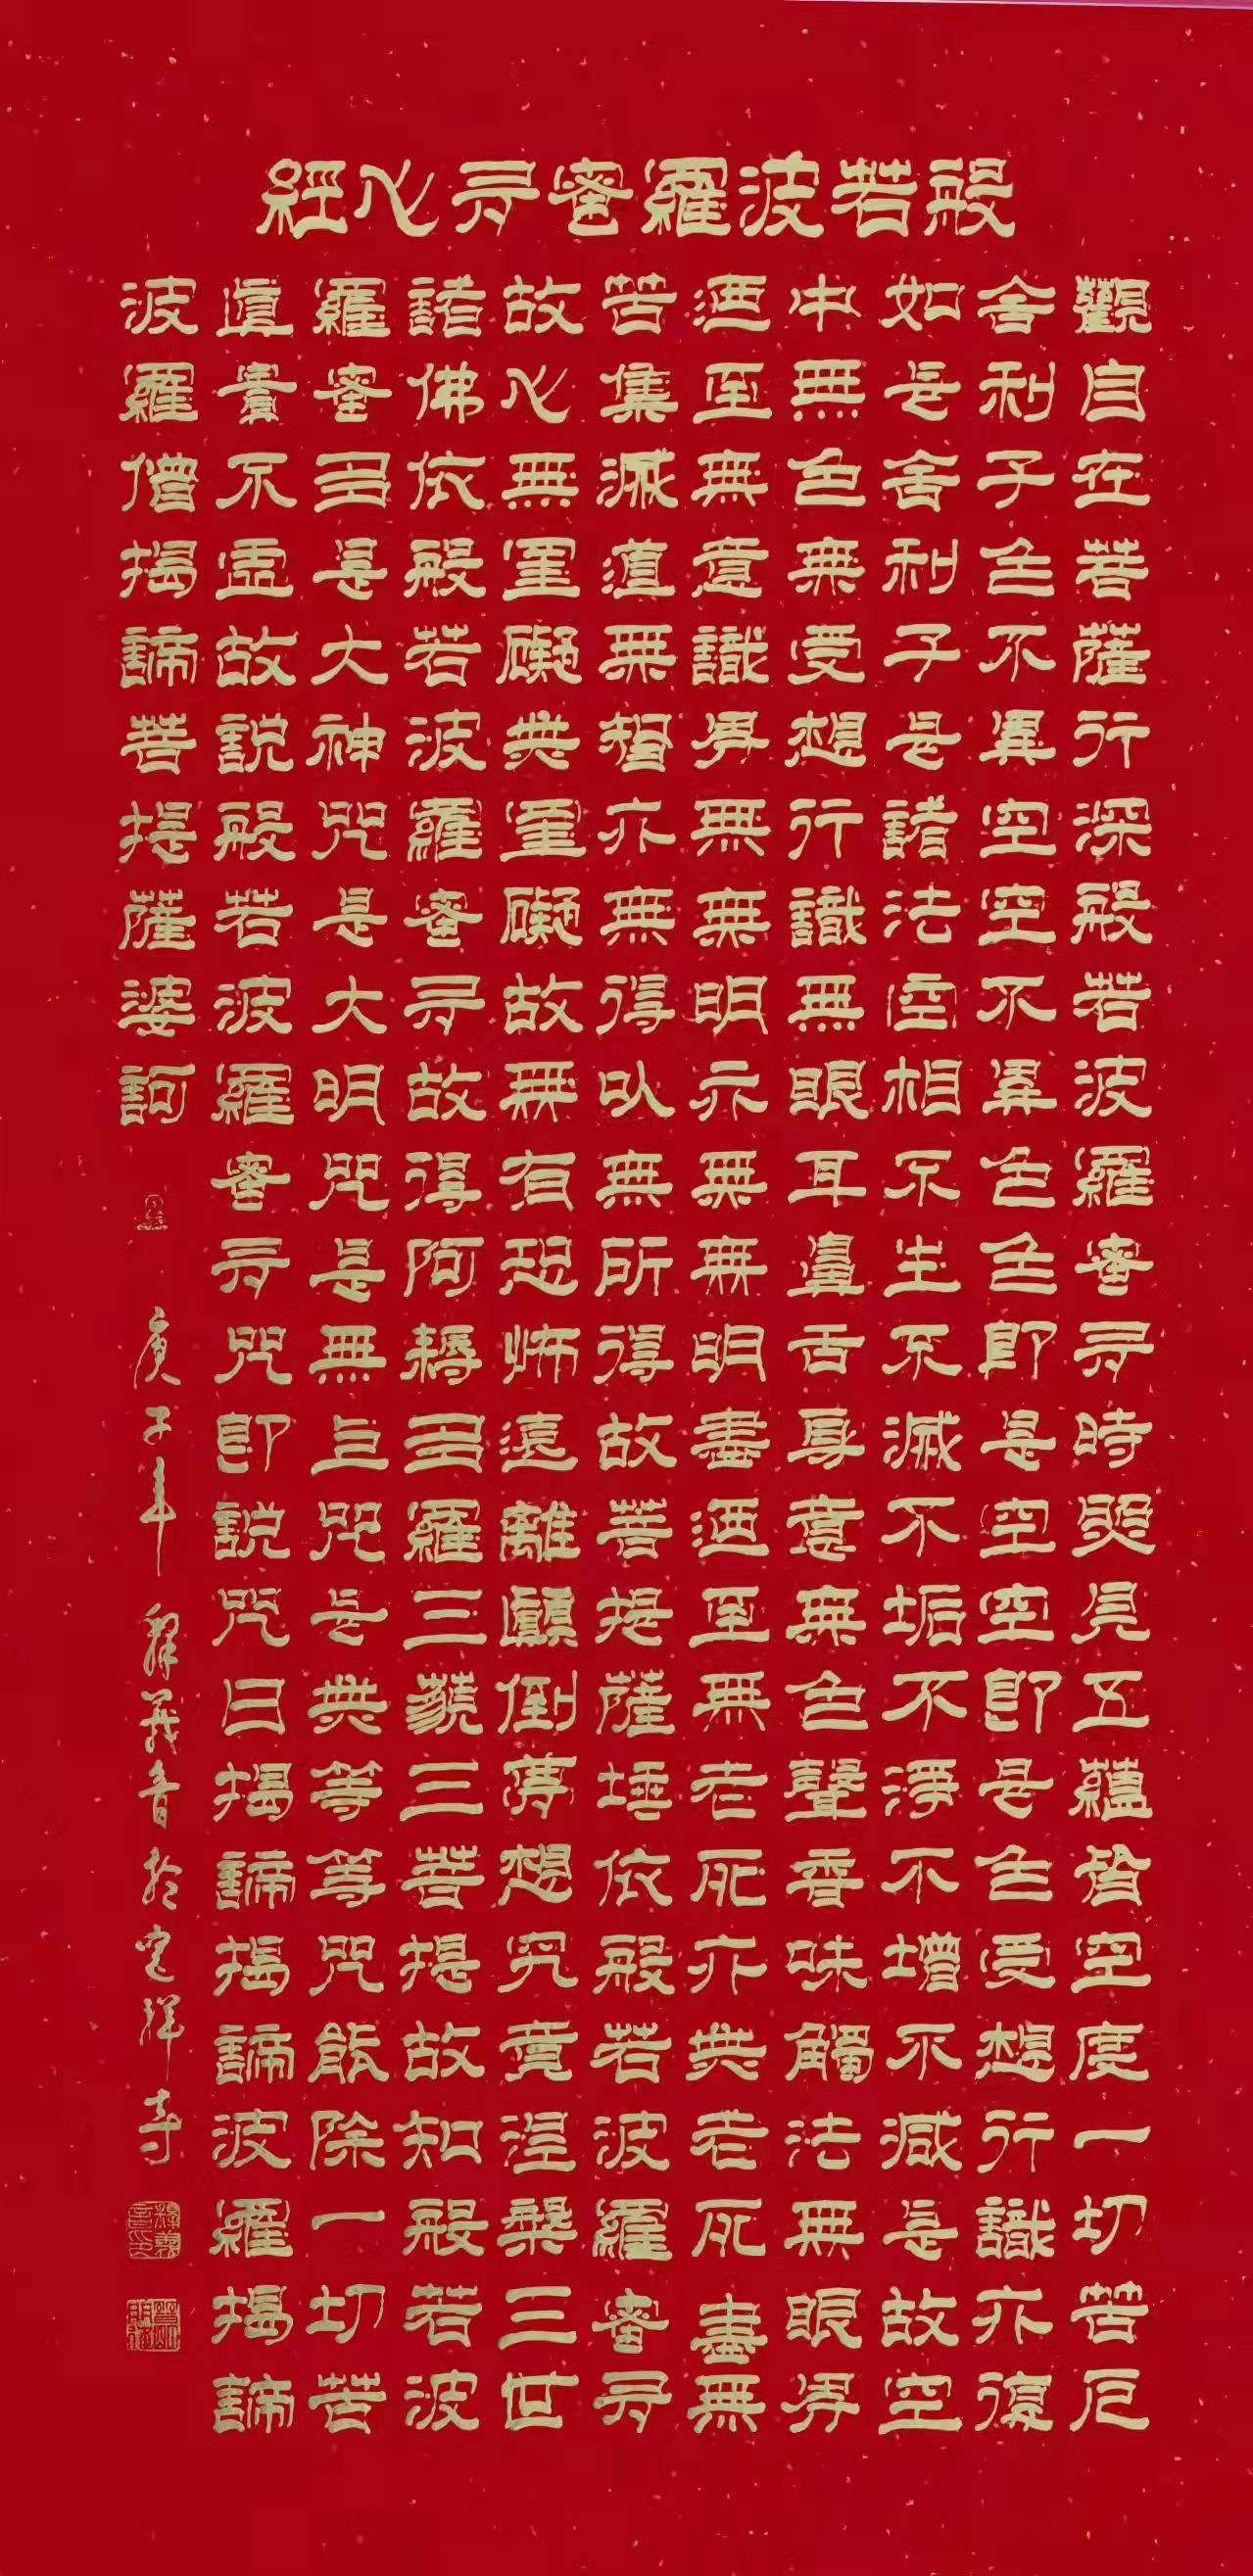 般若波羅蜜多心經
觀自在菩薩行深般若波羅蜜多時照見五蘊皆空度一切苦厄
舍利子色不異空空不異色色即是空空即是色受想行識亦復
如是舍利子是諸法空相不生不滅不垢不淨不增不減是故空
中無色無受想行識無眼耳鼻舌身意無色聲香味觸法無眼界
迺至無意識界無無明亦無無明盡迺至無老死亦無老死盡無
苦集滅道無智亦無得以無所得故菩提薩埵依般若波羅蜜多
故心無罣礙無罣礙故無有恐怖遠離顛倒夢想究竟涅槃三世
諸佛依般若波羅蜜多故得阿耨多羅三藐三菩提故知般若波
羅蜜多是大神咒是大明咒是無上咒是無等等咒能除一切苦
真實不虛故說般若波羅蜜多咒即說咒曰揭諦揭諦波羅揭諦
波羅僧揭諦菩提薩婆訶
庚子年 釋義音於祥寺
釋義音印